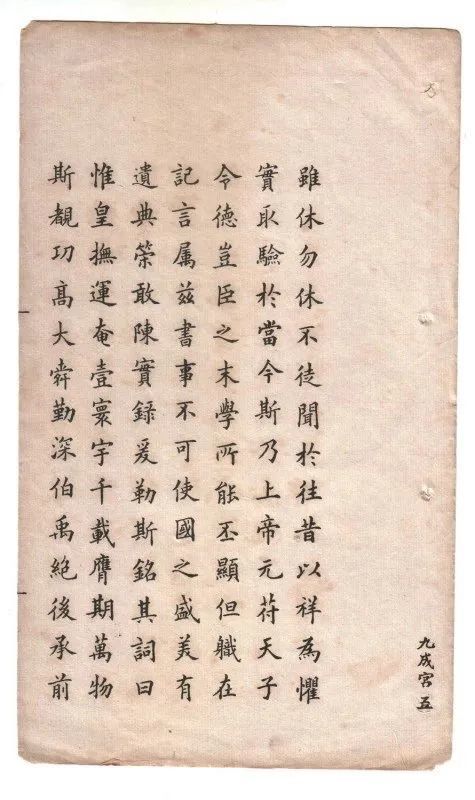 九成宮五
雖休勿休不徒聞於往昔以祥為懼
實取驗於當今斯乃上帝元符天子
令德豈臣之末學所能丕顯但職在
記言属茲書事不可使國之盛美有
遺典策敢陳實録爰勒斯銘其詞曰
惟皇撫運奄壹寰宇千載膺期萬物
斯覩功髙大舜勤深伯禹絕後承前